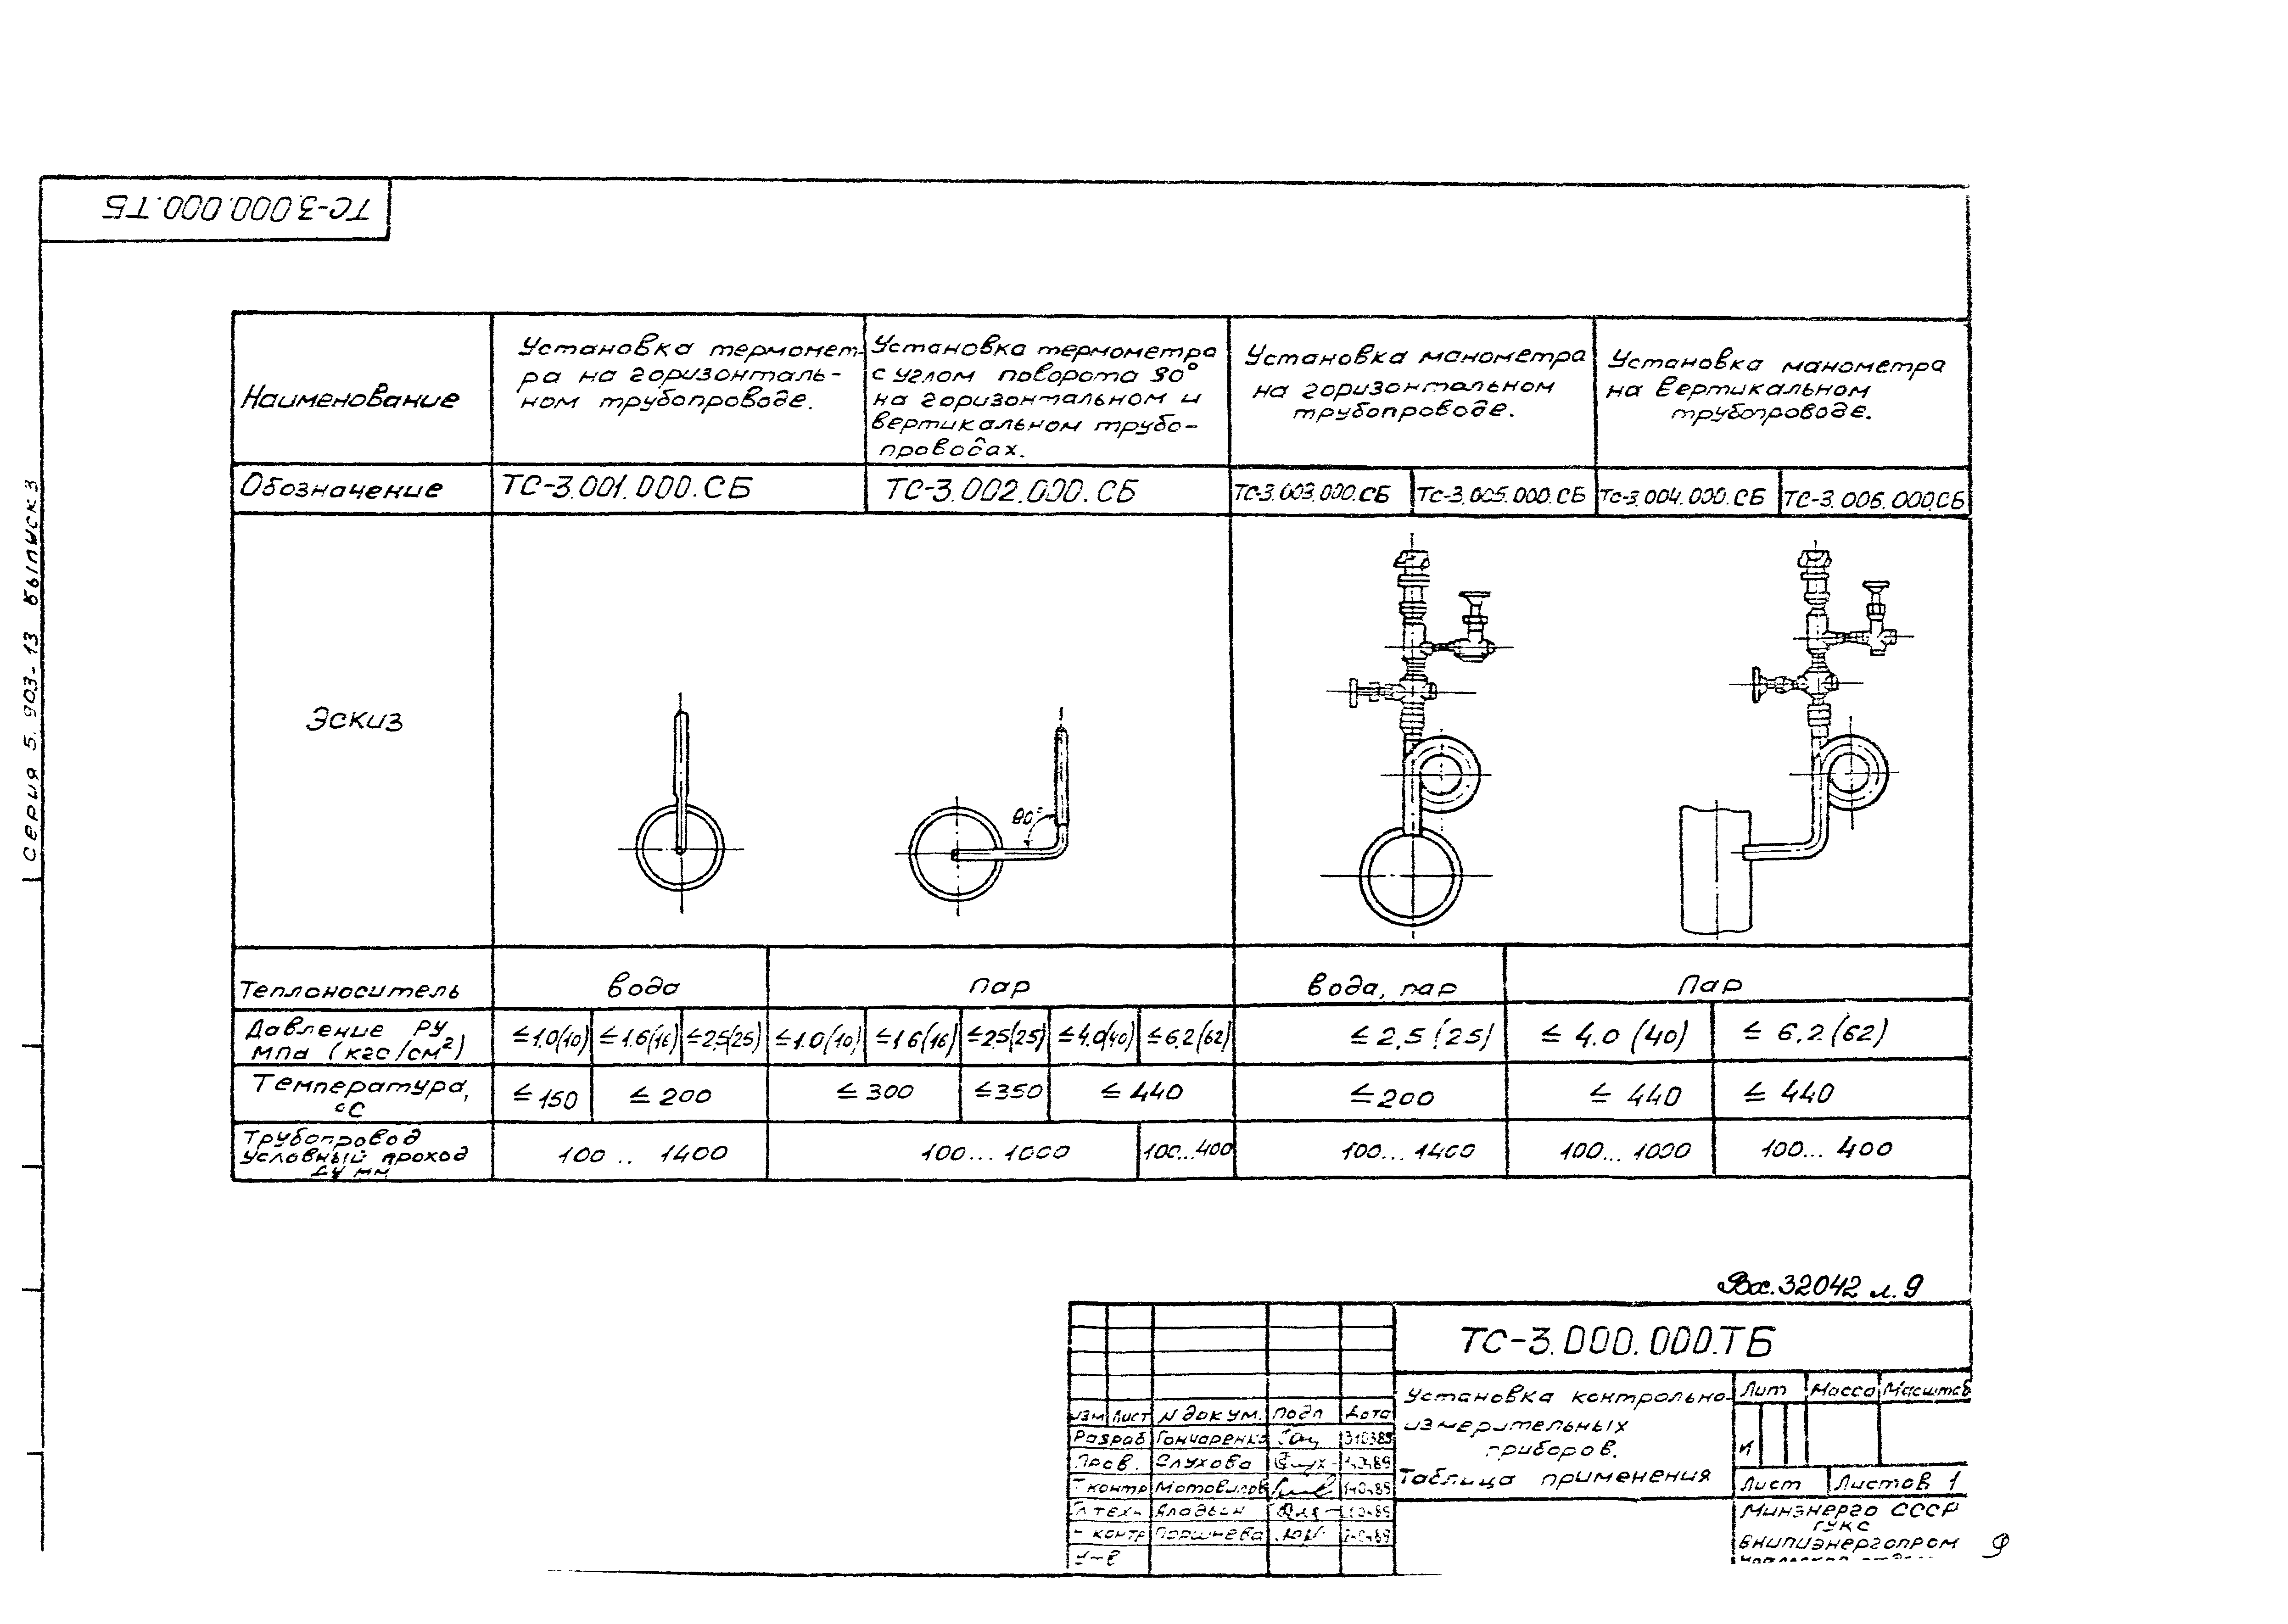 ТС-3.000.000.ТБ
Серия 5.903-13 выпуск 3
Наименование
Установка термомет-
ра на горизонталь-
ном трубопроводе.
Установка термометра
с углом поворота 90°
на горизонтальном и
вертикальном трубо-
проводах.
Установка манометра
на горизонтальном
трубопроводе.
Установка манометра
на вертикальном
трубопроводе.
Обозначение
ТС-3.001.000.СБ
ТС-3.002.000.СБ
ТС-3.003.000.СБ
ТС-3.005.000.СБ
ТС-3.004.000.СБ
ТС-3.006.000.СБ
Эскиз
90°
Теплоноситель
вода
пар
вода, пар
пар
Давление РУ
мпа (кгс/см²)
≤1.0(10)
≤1.6(16)
≤2.5(25)
≤1.0(10)
≤1.6(16)
≤2.5(25)
≤4.0(40)
≤6.2(62)
≤2.5(25)
≤4.0(40)
≤6.2(62)
Температура,
°С
≤150
≤200
≤300
≤350
≤440
≤200
≤440
≤440
Трубопровод
условный проход
Ду мм
100 .. 1400
100...1000
100...400
100...1400
100...1000
100...400
Вх.32042 л.9
ТС-3.000.000.ТБ
Установка контрольно-
измерительных
приборов.
Таблица применения
Лит
Масса
Масштаб
И
Лист
Листов 1
Минэнерго СССР
ГУКС
ВНИПИэнергопром
изм
Лист
N докум.
Подп
Дата
Разраб
Гончаренко
310389
Пров.
Слухова
Т контр
Мотовилов
Гл техн
Аладьин
Н контр
Поршнева
Утв
9